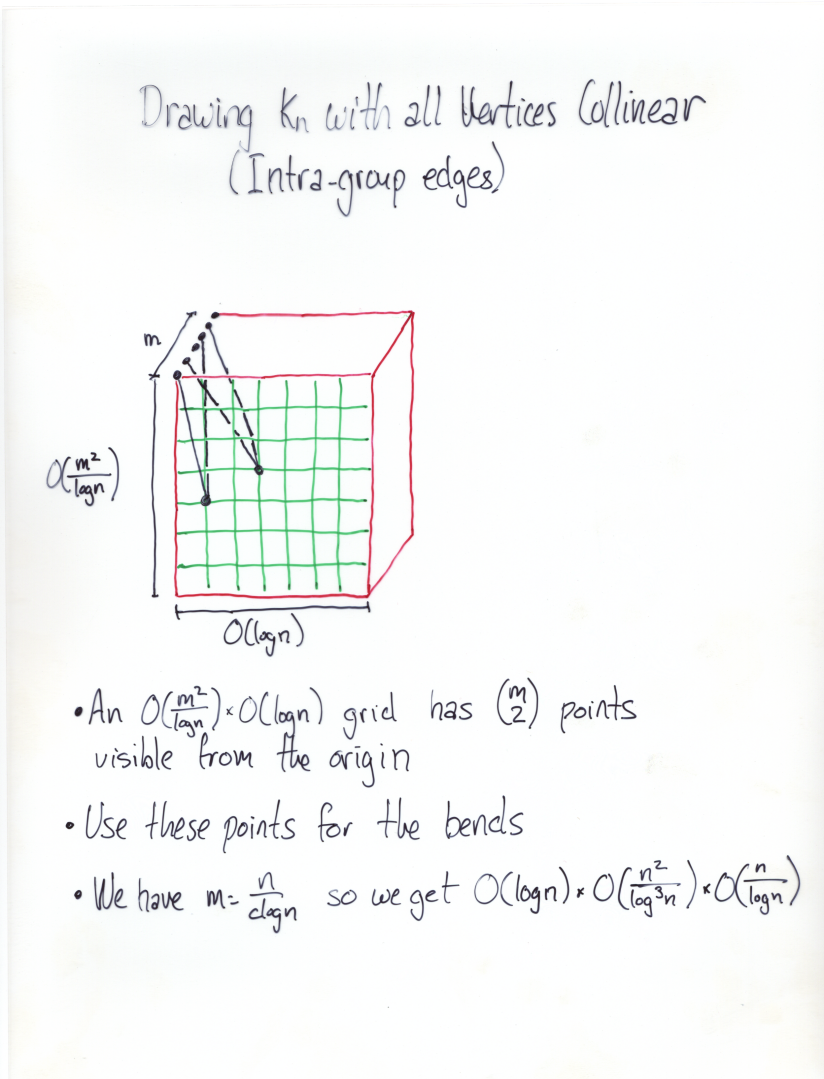 Drawing Kn with all Vertices Collinear
(Intra-group edges)
m
O(m²/logn)
O(logn)
• An O(m²/logn) × O(logn) grid has (m 2) points
visible from the origin
• Use these points for the bends
• We have m = n/clogn so we get O(logn) × O(n²/log³n) × O(n/logn)